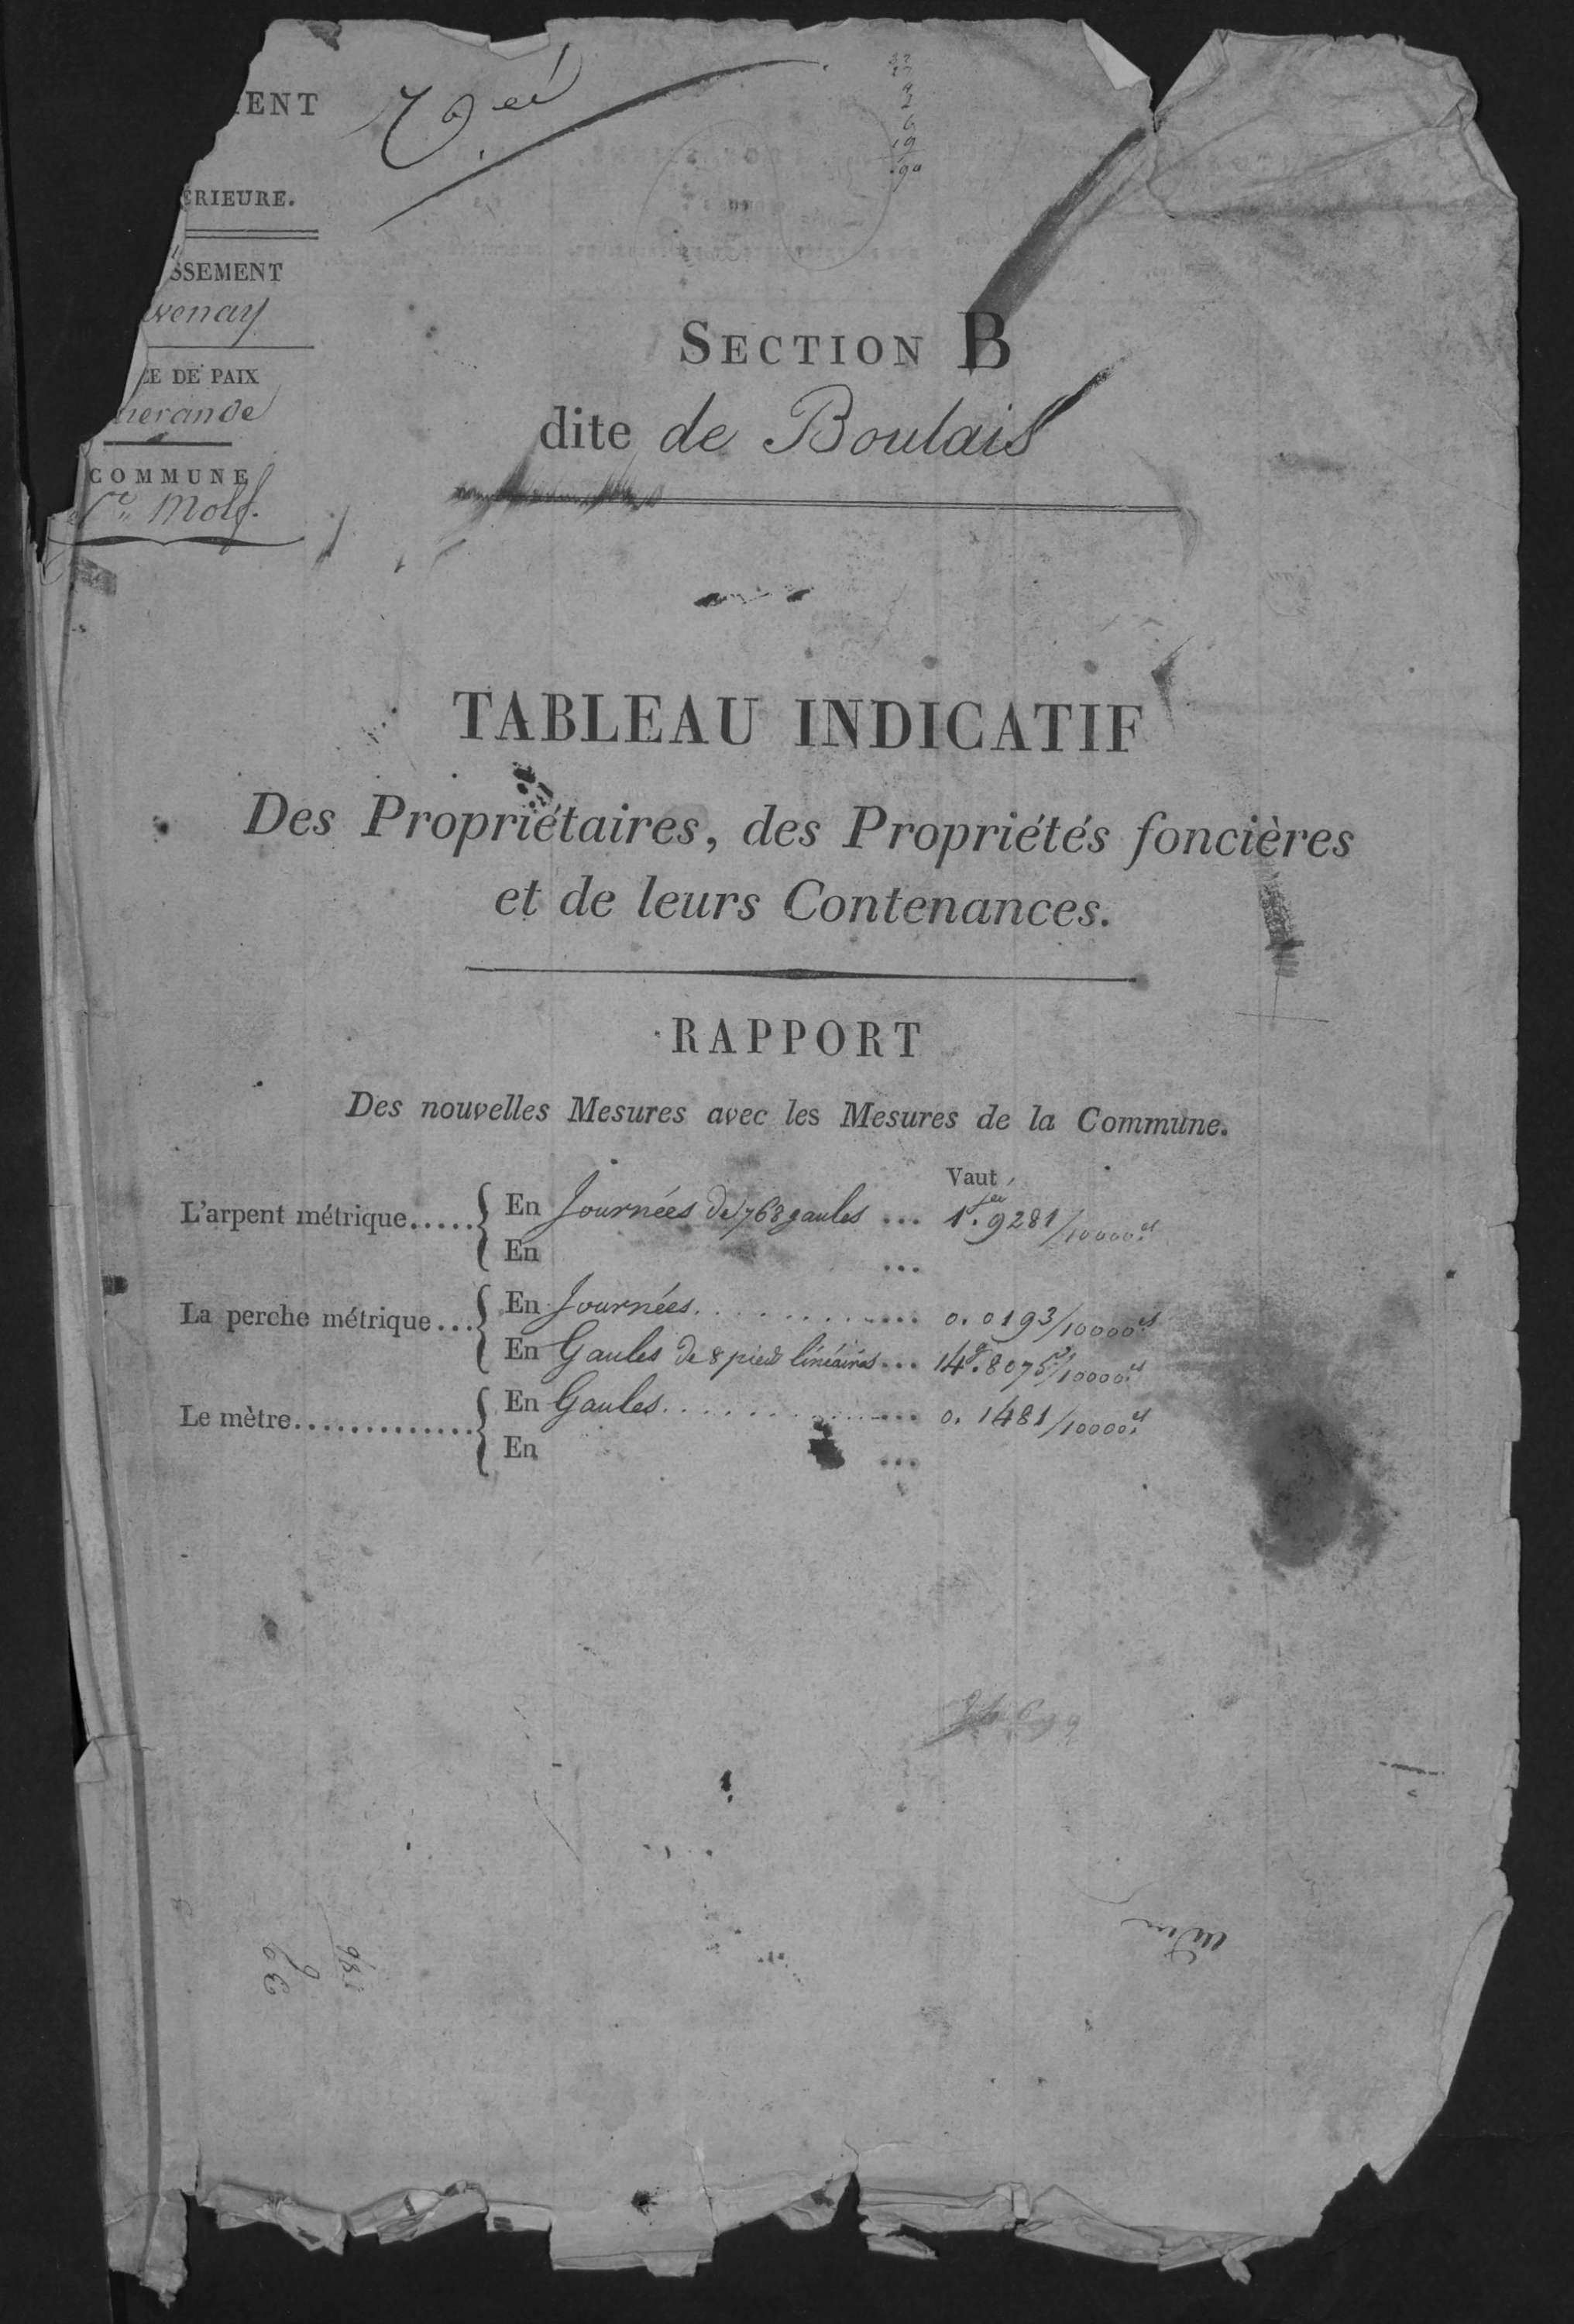 ENT
ÉRIEURE.
SSEMENT
venay
CE DE PAIX
uerande
COMMUNE
Molf.
32
19
90
SECTION B
dite de Boulais
TABLEAU INDICATIF
Des Propriétaires, des Propriétés foncières
et de leurs Contenances.
RAPPORT
Des nouvelles Mesures avec les Mesures de la Commune.
Vaut
L'arpent métrique..... { En Journées de 768 gaules ... 1. 9281/10000es
En ...
La perche métrique... { En Journées. ... 0. 0193/10000es
En Gaules de 8 pied linéaires ... 14g. 8075/10000es
Le mètre............. { En Gaules. ... 0. 1481/10000es
En ...